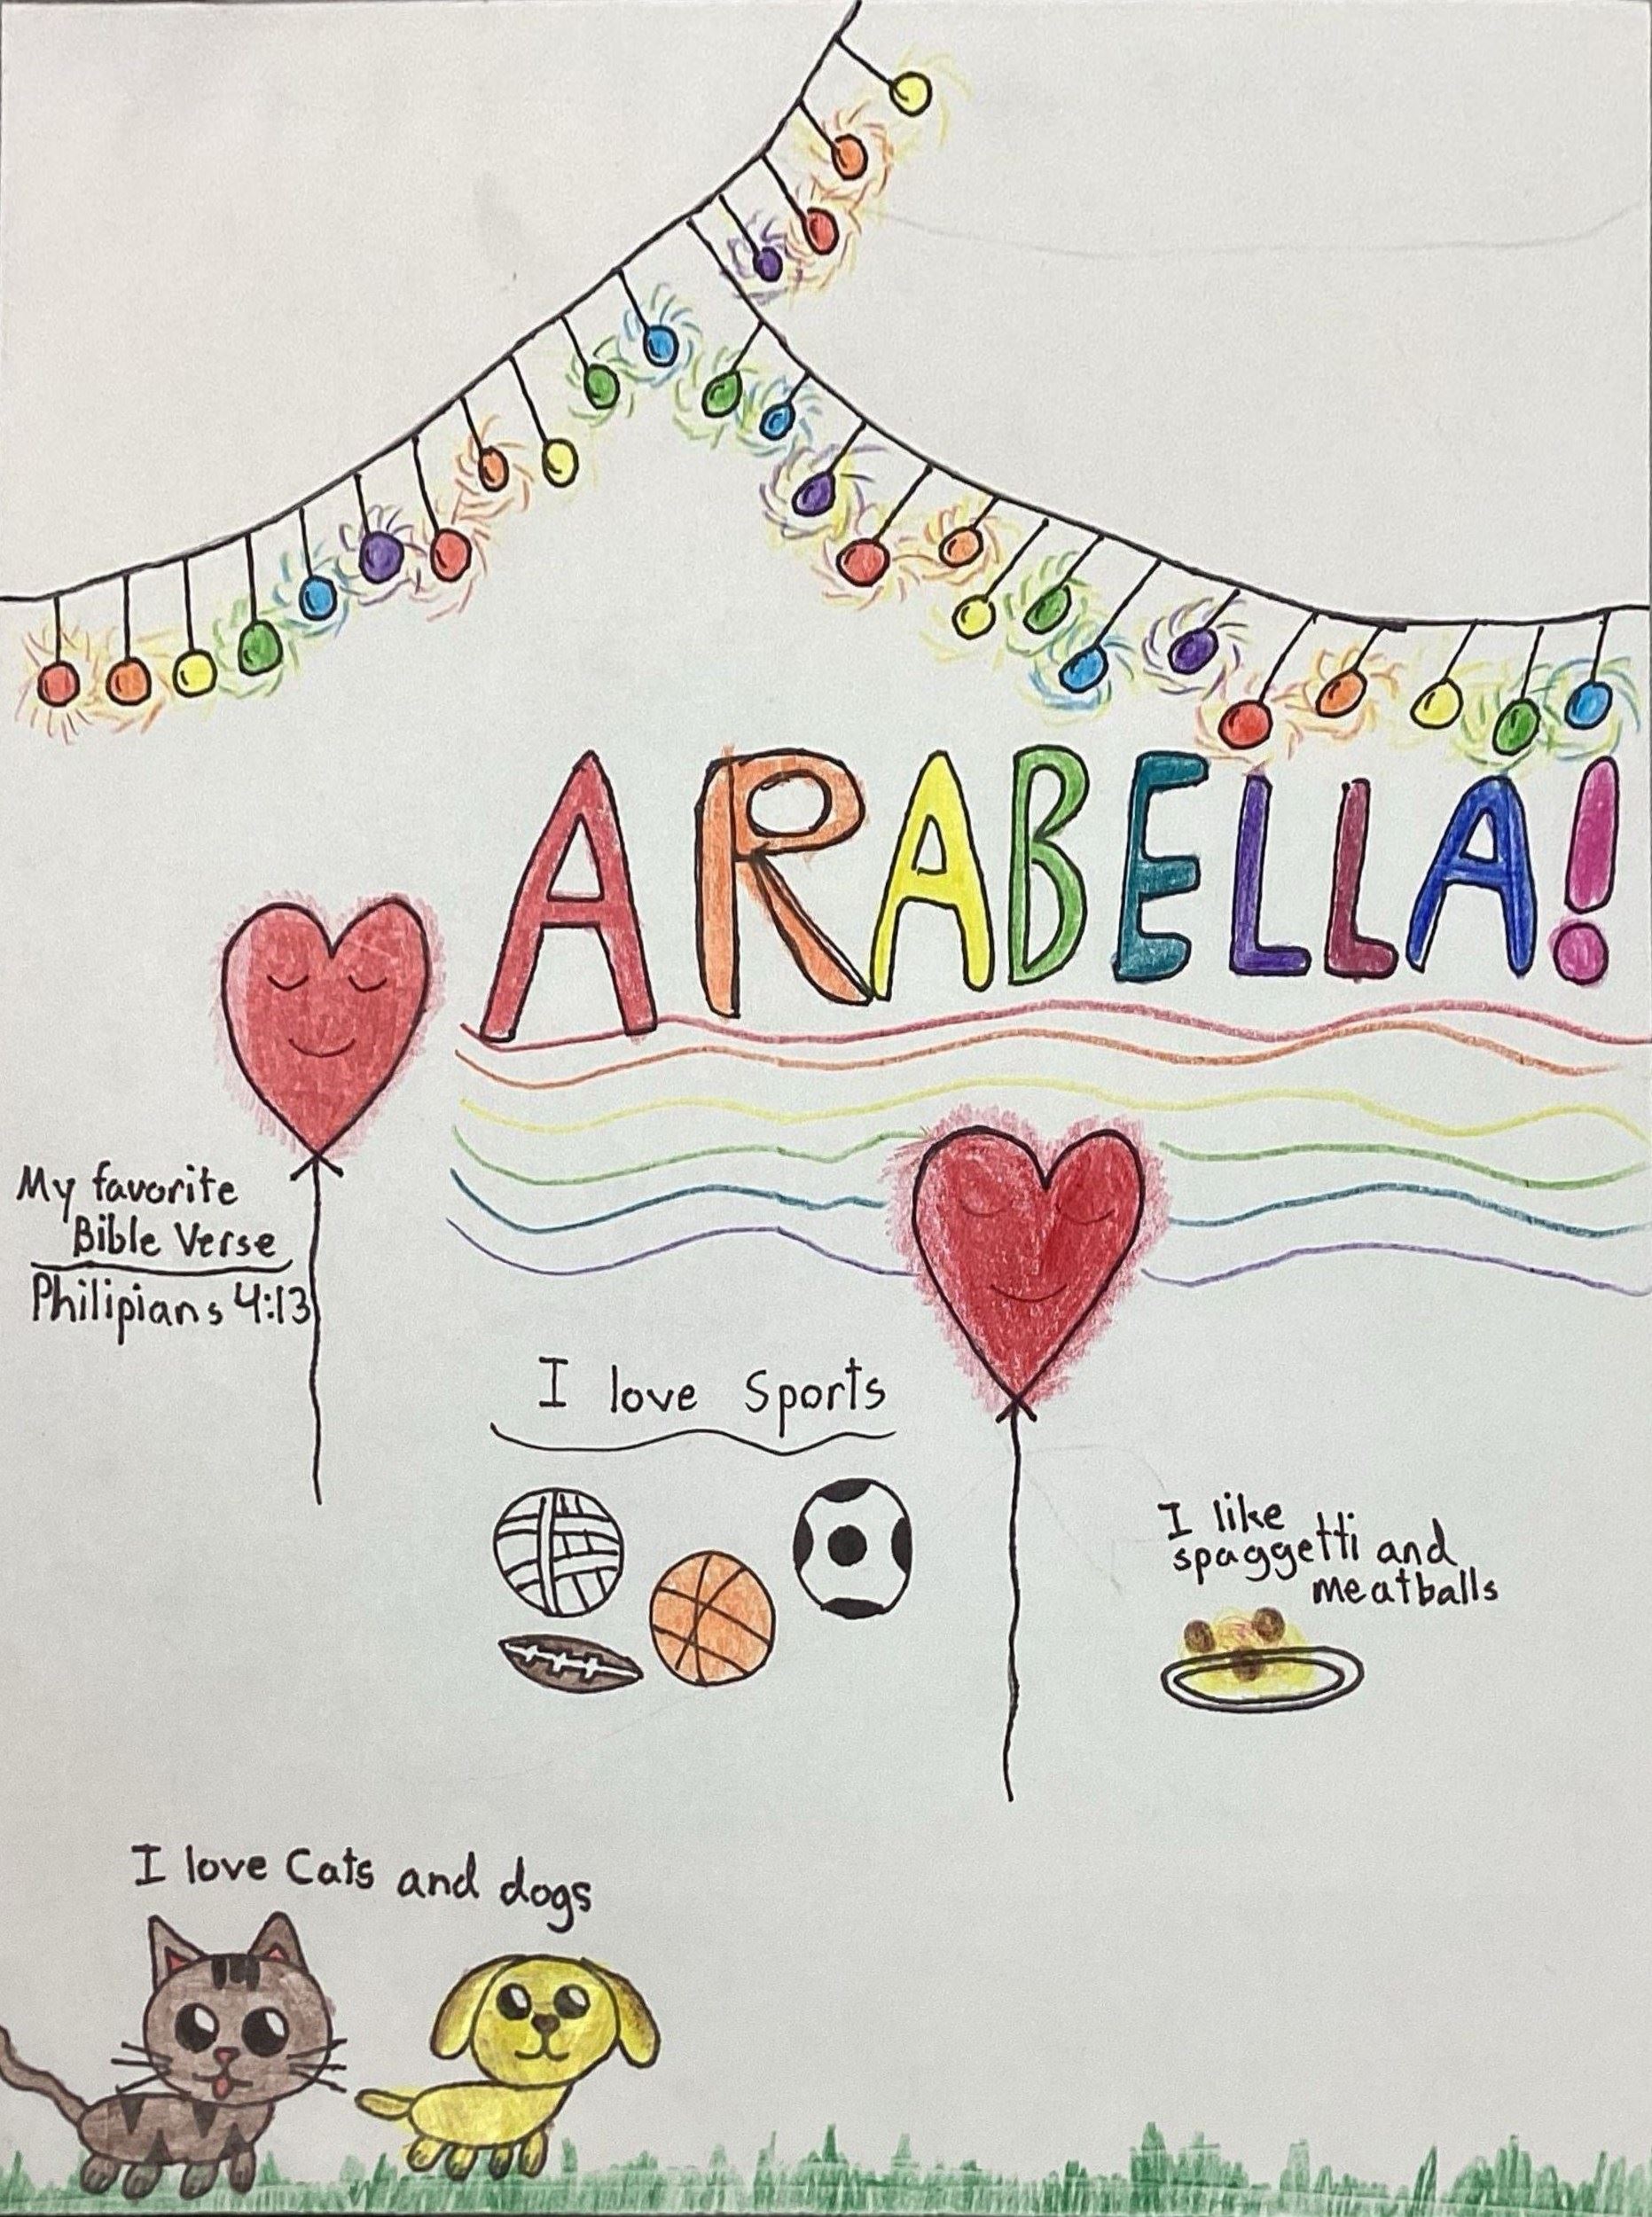 ARABELLA!
My favorite
Bible Verse
Philipians 4:13
I love Sports
I like
spaggetti and
meatballs
I love Cats and dogs